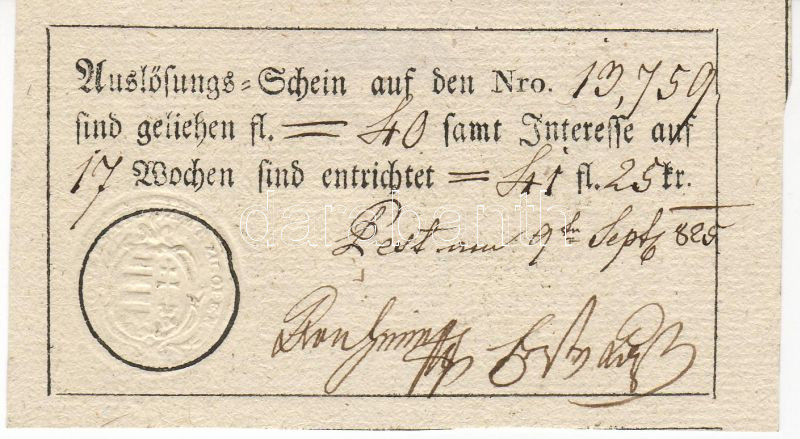 Auslösungs=Schein auf den Nro. 13,759
sind geliehen fl. = 40 samt Interesse auf
17 Wochen sind entrichtet = 41 fl. 25 kr.
Pest am 9ten Septb 825